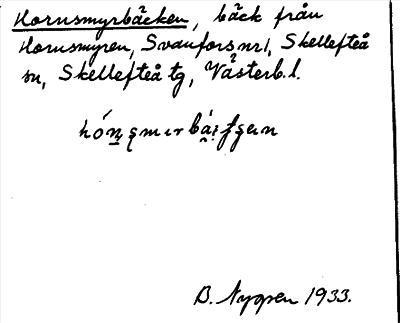 Hornsmyrbäcken, bäck från
Hornsmyren, Svanfors nr 1, Skellefteå
sn, Skellefteå tg, Västerb. l.
B. Nygren 1933.